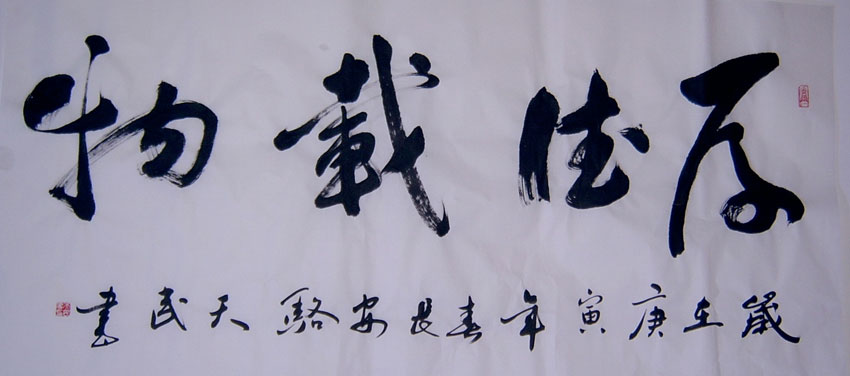 厚德載物
歲在庚寅年春長安駱天民書